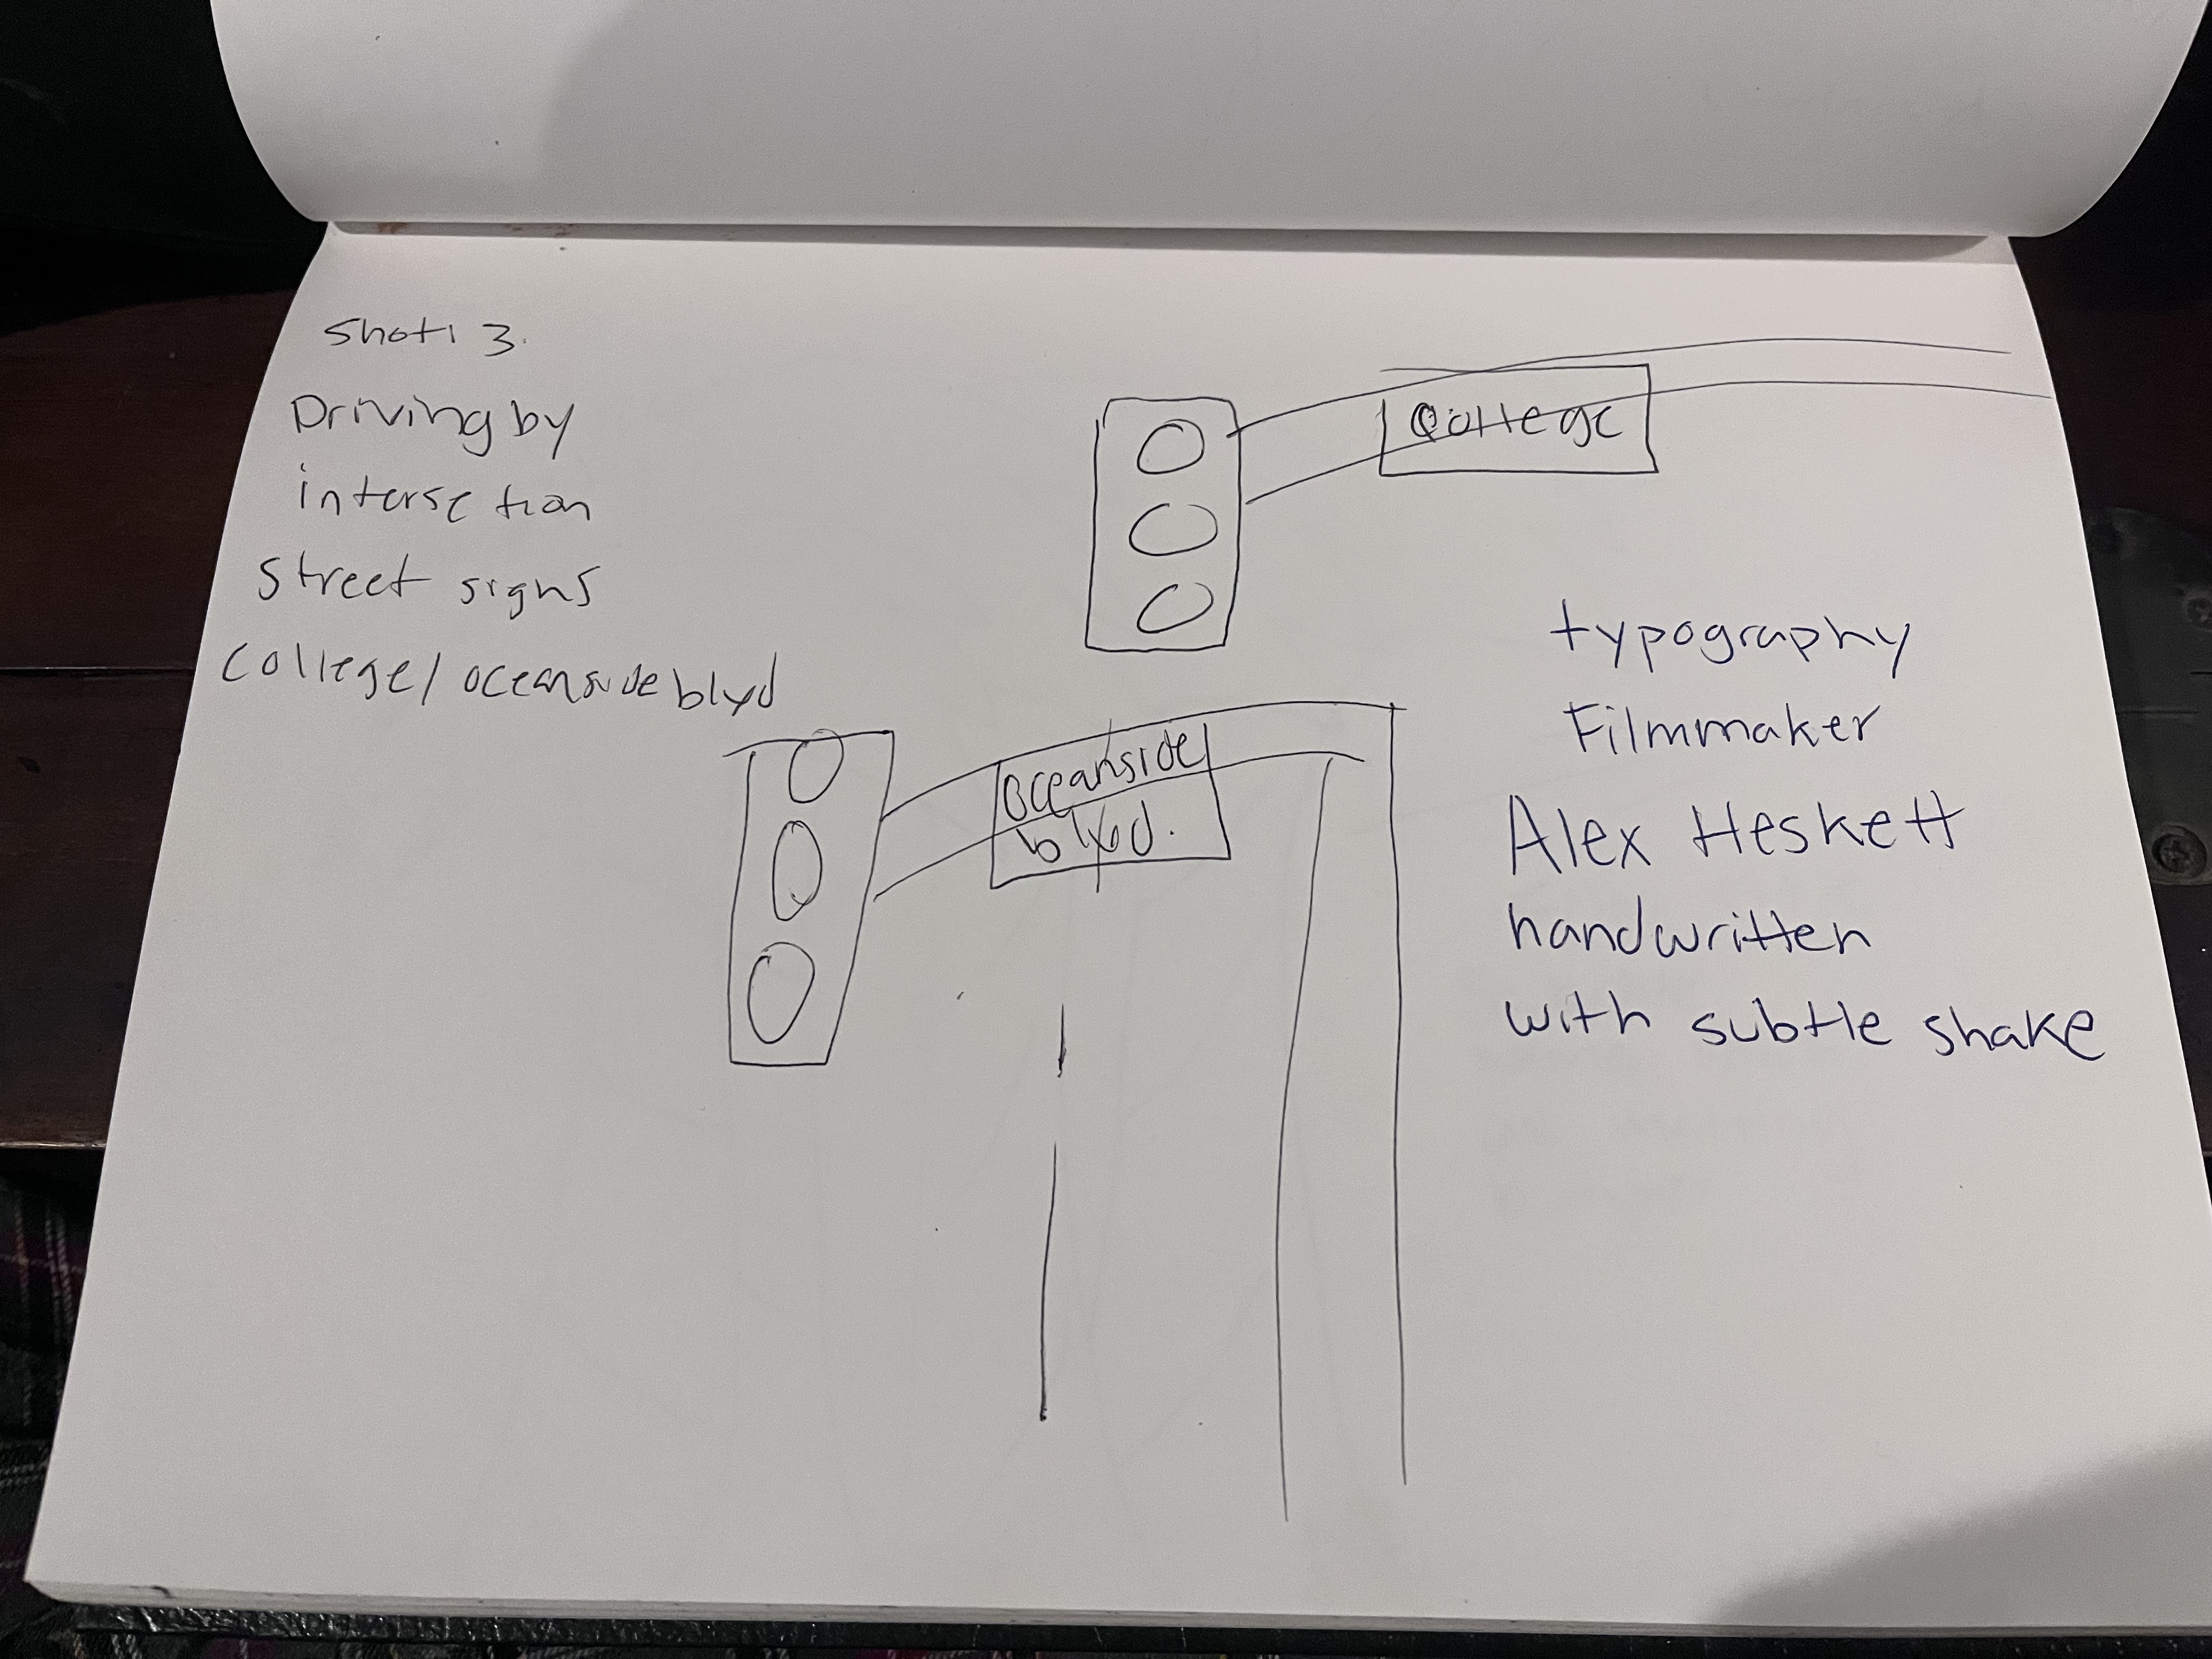 Shot 3.
Driving by
intersction
street signs
college/oceanside blvd
College
oceanside
blvd.
typography
Filmmaker
Alex Heskett
handwritten
with subtle shake